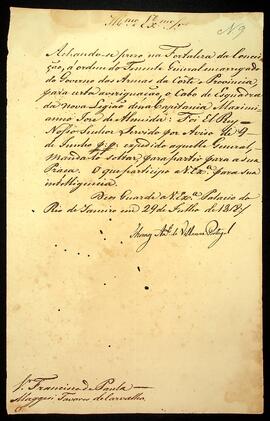 Illmo. Exmo. Snr.
Nº 9
Achando-se preso na Fortaleza da Concei-
ção, á ordem do Tenente General encarregado
do Governo das Armas da Corte e Provincia,
para certa averiguação, o Cabo de Esquadra
da nova Legião dessa Capitania Maximi-
anno José de Almeida: Foi El Rey
Nosso Senhor Servido por Aviso de 9
de Junho p. p. expedido aquelle General,
Mandallo soltar, para partir para a sua
Praça. O que participo a V. Exª para sua
intelligencia.
Deos Guarde a V. Exª Palacio do
Rio de Janeiro em 29 de Julho de 1818
Thomaz Antº de Villanova Portugal
Sr. Francisco de Paula
Maggessi Tavares de Carvalho.